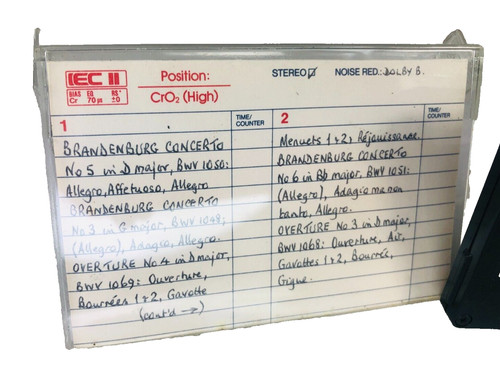 IEC II
BIAS EQ RS*
Cr 70µ ±0
Position:
CrO2 (High)
STEREO ☑ NOISE RED.: DOLBY B.
1
TIME/
COUNTER
BRANDENBURG CONCERTO
No 5 in D major, BWV 1050:
Allegro, Affetuoso, Allegro
BRANDENBURG CONCERTO
No 3 in G major, BWV 1048:
(Allegro), Adagio, Allegro.
OVERTURE No 4 in D major,
BWV 1069: Ouverture,
Bourrées 1 & 2, Gavotte
(cont'd →)
2
TIME/
COUNTER
Menuets 1 & 2; Réjouissance
BRANDENBURG CONCERTO
No 6 in Bb major, BWV 1051:
(Allegro), Adagio ma non
tanto, Allegro.
OVERTURE No 3 in D major,
BWV 1068: Ouverture, Air,
Gavottes 1 & 2, Bourrée,
Gigue.